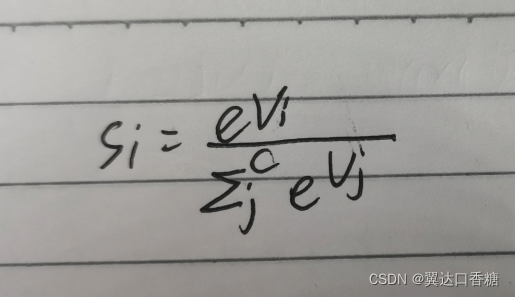 Si = e^{Vi} / Σ_j^C e^{Vj}
CSDN @翼达口香糖